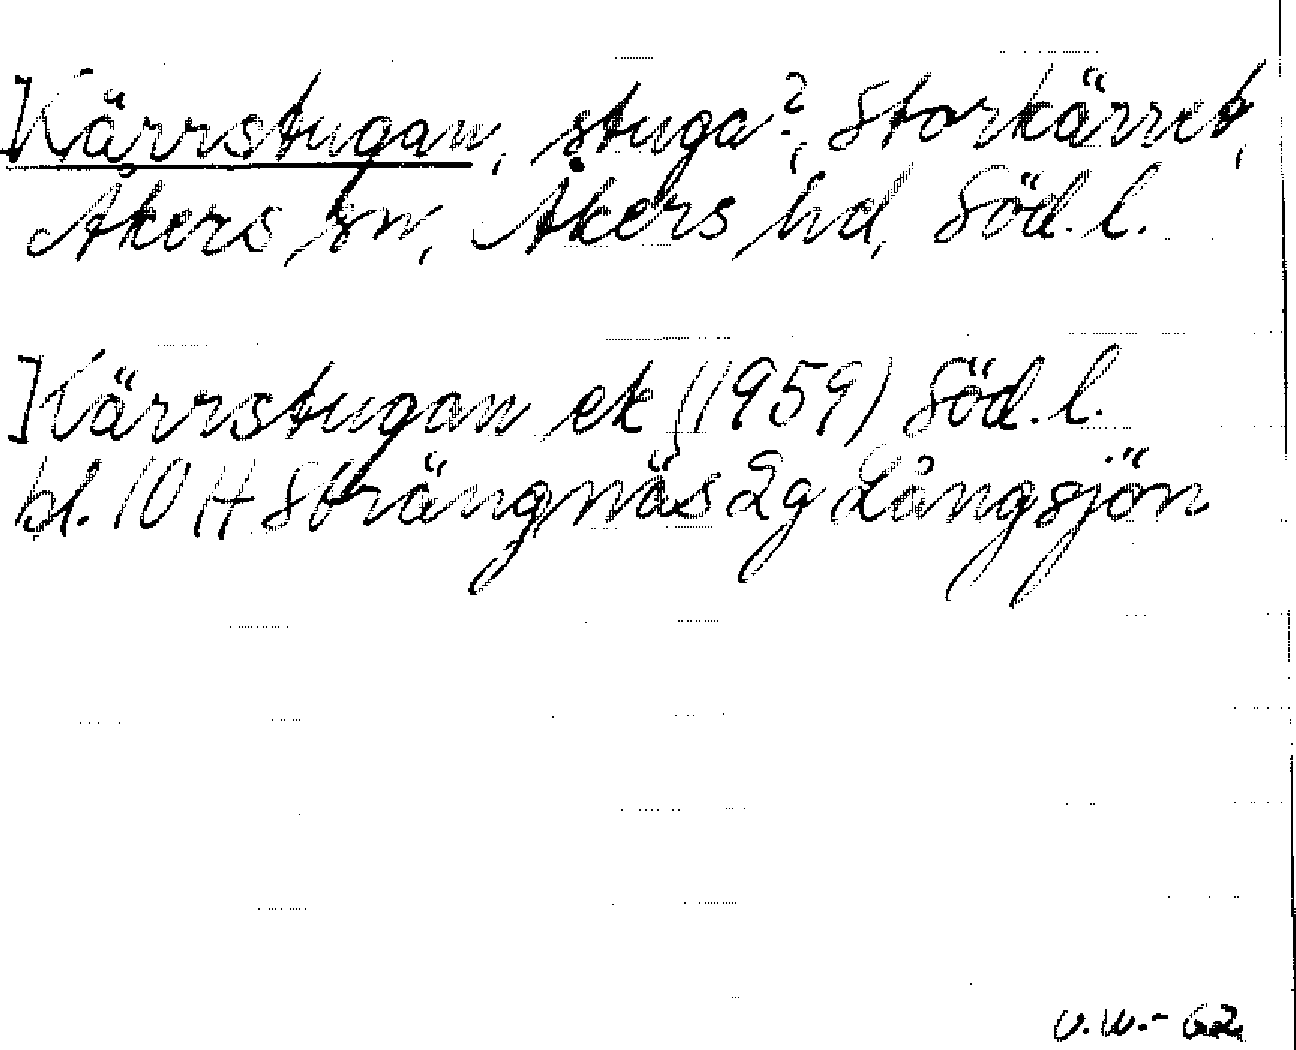 Kärrstugan, stuga?, Storkärret,
Åkers sn, Åkers hd, Söd. l.
Kärrstugan ek (1959) Söd. l.
bl. 10 H Strängnäs 2g Långsjön
V.W.- 62